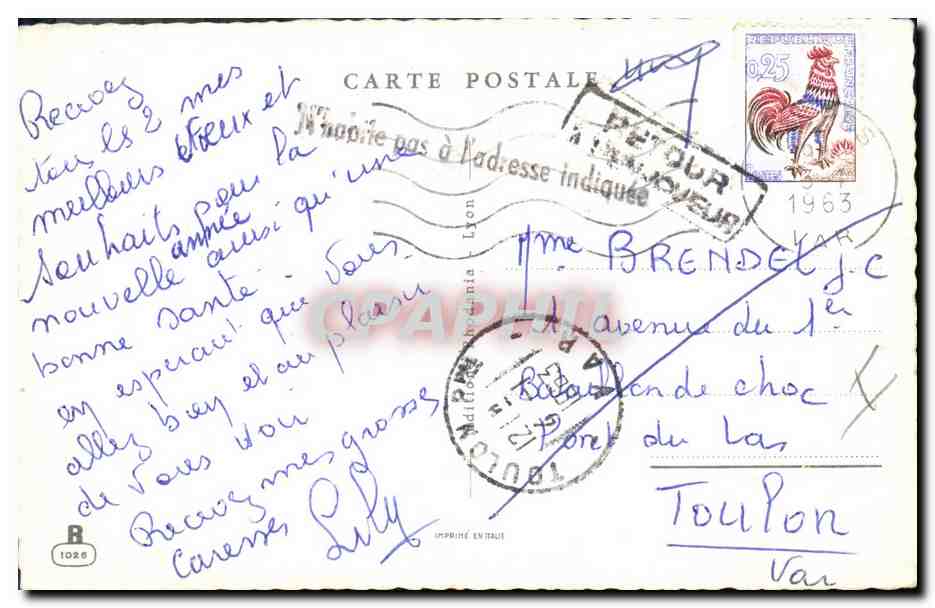 CARTE POSTALE
0,25
N'habite pas à l'adresse indiquée
RETOUR
A L'ENVOYEUR
1963
VAR
Recevez
tous les 2 mes
meilleurs vœux et
souhaits pour la
nouvelle année ainsi qu'une
bonne santé -
en esperant que vous
allez bien et au plaisir
de vous voir
Recevez mes grosses
caresses Lily
Mme BRENDEL J.C
1 avenue du 1er
Bataillon de choc
Pont du Las
Toulon
Var
TOULON
Editions Rhodania - Lyon
CPAPHIL
R
1026
IMPRIMÉ EN ITALIE